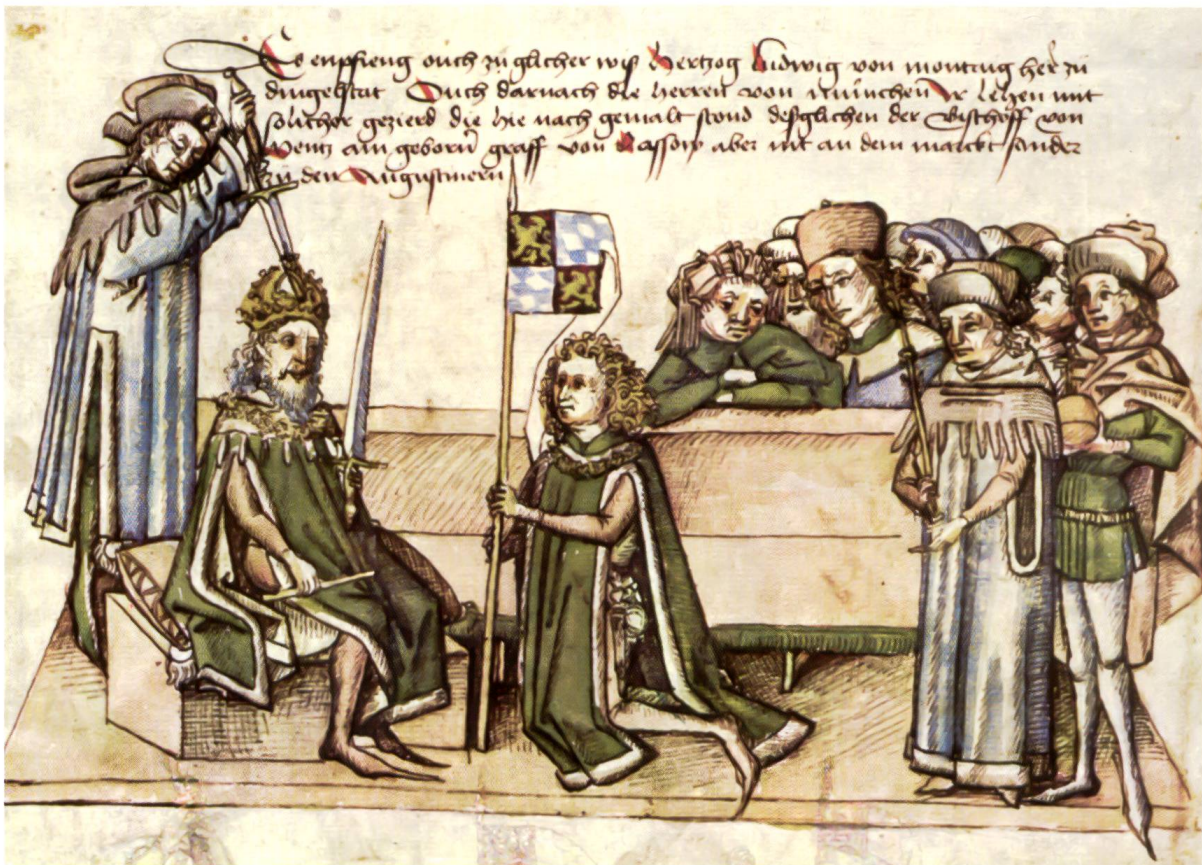 Es enpfieng ouch zu glicher wiß Hertzog Ludwig von montaug her zů
Ingelstat Ouch darnach die herren von münchen Ir lehen mit
solicher gezierd die hie nach gemalt stond deßglichen der Bischoff von
Mentz ain geborn graff von Nassow aber nit an dem marckt sunder
zů den Augustinern